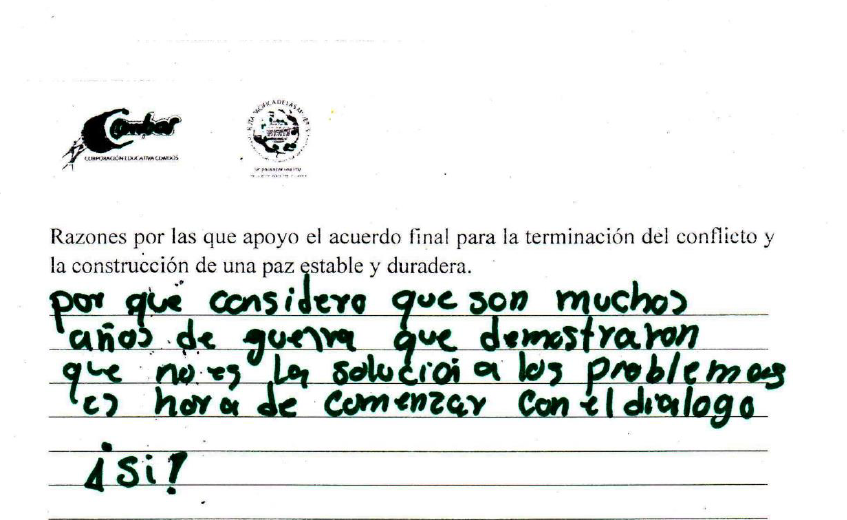 Combos
CORPORACIÓN EDUCATIVA COMBOS
Razones por las que apoyo el acuerdo final para la terminación del conflicto y
la construcción de una paz estable y duradera.
por què considero que son muchos
años de guerra que demostraron
que no es la solucioi a los problemas
es hora de comenzar con el dialogo
¡Si!